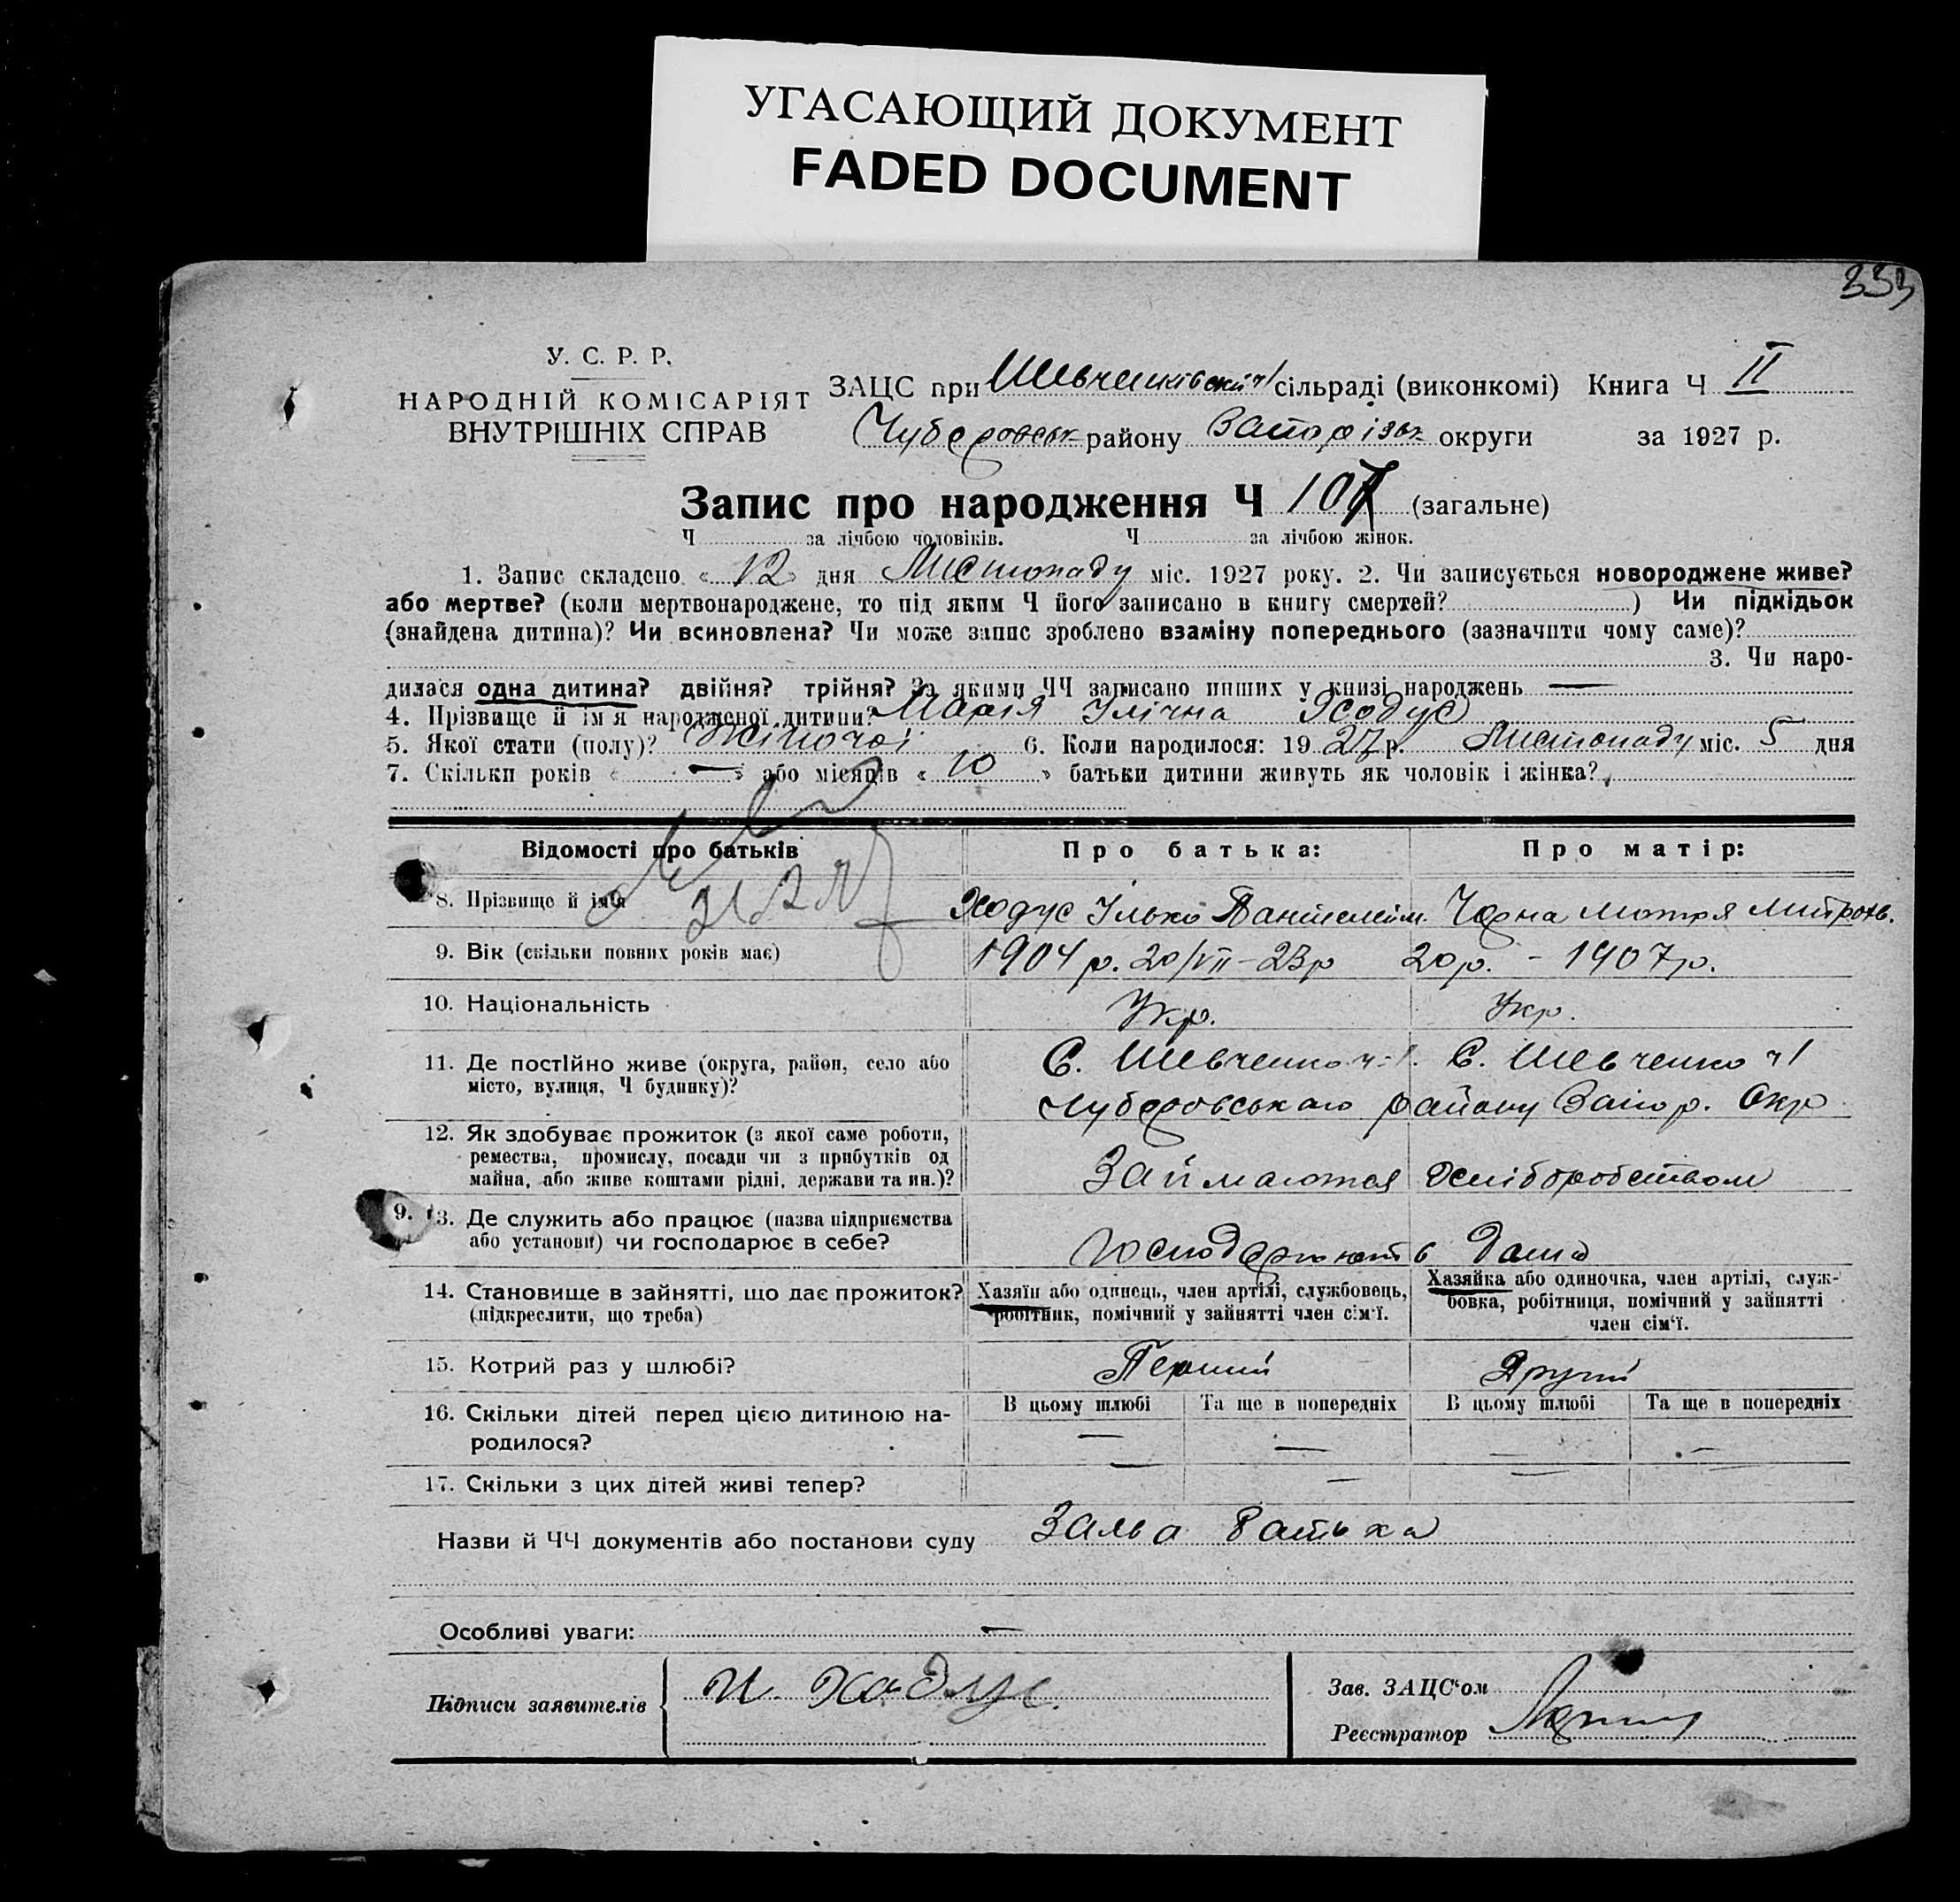 УГАСАЮЩИЙ ДОКУМЕНТ
FADED DOCUMENT
333
У. С. Р. Р.
НАРОДНІЙ КОМІСАРІЯТ
ВНУТРІШНІХ СПРАВ
ЗАЦС при Шевченківській ч1 сільраді (виконкомі) Книга Ч II
Чубаровськ району Запорізьк округи за 1927 р.
Запис про народження Ч 107 (загальне)
Ч за лічбою чоловіків. Ч за лічбою жінок.
1. Запис складено «12» дня Листопаду міс. 1927 року. 2. Чи записується новороджене живе?
або мертве? (коли мертвонароджене, то під яким Ч його записано в книгу смертей? ) Чи підкідьок
(знайдена дитина)? Чи всиновлена? Чи може запис зроблено взаміну попереднього (зазначити чому саме)?
3. Чи наро-
дилася одна дитина? двійня? трійня? За якими ЧЧ записано инших у книзі народжень —
4. Прізвище й ім'я народженої дитини? Марія Ілічна Ходус
5. Якої стати (полу)? Жіночої 6. Коли народилося: 1927 р. Листопаду міс. 5 дня
7. Скільки років « — » або місяців « 10 » батьки дитини живуть як чоловік і жінка?
Відомості про батьків Про батька: Про матір:
8. Прізвище й ім'я Ходус Ілько Пантелейм. Чорна Мотря Митроф.
9. Вік (скільки повних років має) 1904 р. 20/VII – 23р 20р. – 1907р.
10. Національність Укр. Укр.
11. Де постійно живе (округа, район, село або С. Шевченко ч 1. С. Шевченко ч1
місто, вулиця, Ч будинку)? Чубаровського району Запор. Окр
12. Як здобуває прожиток (з якої саме роботи,
ремества, промислу, посади чи з прибутків од
майна, або живе коштами рідні, держави та ин.)? Займаются хліборобством
9. 13. Де служить або працює (назва підприємства
або установи) чи господарює в себе? Господарюют в дома
14. Становище в зайнятті, що дає прожиток? Хазяїн або одинець, член артілі, службовець, Хазяйка або одиночка, член артілі, служ-
(підкреслити, що треба) робітник, помічний у зайнятті член сім'ї. бовка, робітниця, помічний у зайнятті
член сім'ї.
15. Котрий раз у шлюбі? Перший Другий
16. Скільки дітей перед цією дитиною на- В цьому шлюбі Та ще в попередніх В цьому шлюбі Та ще в попередніх
родилося? — — — —
17. Скільки з цих дітей живі тепер? — — — —
Назви й ЧЧ документів або постанови суду Заява батька
Особливі уваги: —
Підписи заявителів И. Ходус Зав. ЗАЦС'ом
Реєстратор